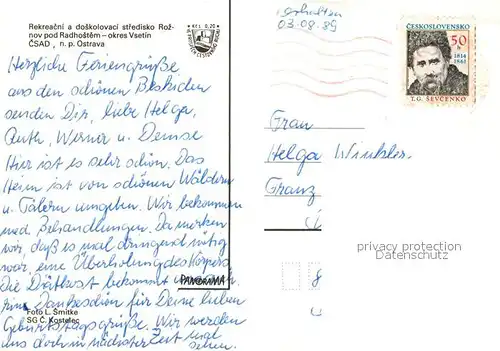 Rekreační a doškolovací středisko Rož-
nov pod Radhoštěm – okres Vsetín
ČSAD, n. p. Ostrava
Kčs 0,20
Herzliche Feriengrüße
aus den schönen Beskiden
senden Dir, liebe Helga,
Ruth, Werner u. Denise
Hier ist es sehr schön. Das
Heim ist von schönen Wäldern
u. Tälern umgeben. Wir bekommen
med Behandlungen. Da merken
wir, daß es mal dringend nötig
war, eine Überholung des Körpers.
Die Diätkost bekommt
Dankeschön für Deine lieben
Geburtstagsgrüße. Wir werden
uns doch in nächster Zeit mal
sehen.
PANORAMA
Foto L. Smitke
SG Č. Kostelec
erhalten
03.08.89
ČESKOSLOVENSKO
50
h
1814
1861
T.G. ŠEVČENKO
Frau
Helga Winkler
Franz
privacy protection
Osthessen
8